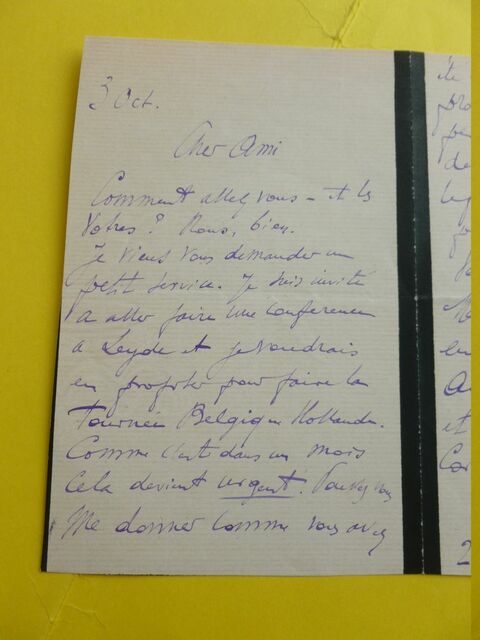 3 Oct.
Cher Ami
Comment allez vous - et les
Votres ? Nous, bien.
Je viens vous demander un
petit service. Je suis invité
a aller faire une conference
a Leyde et je voudrais
en profiter pour faire la
Tournée Belgique Hollande.
Comme c'est dans un mois
Cela devient urgent. Pouvez vous
Me donner comme vous avez